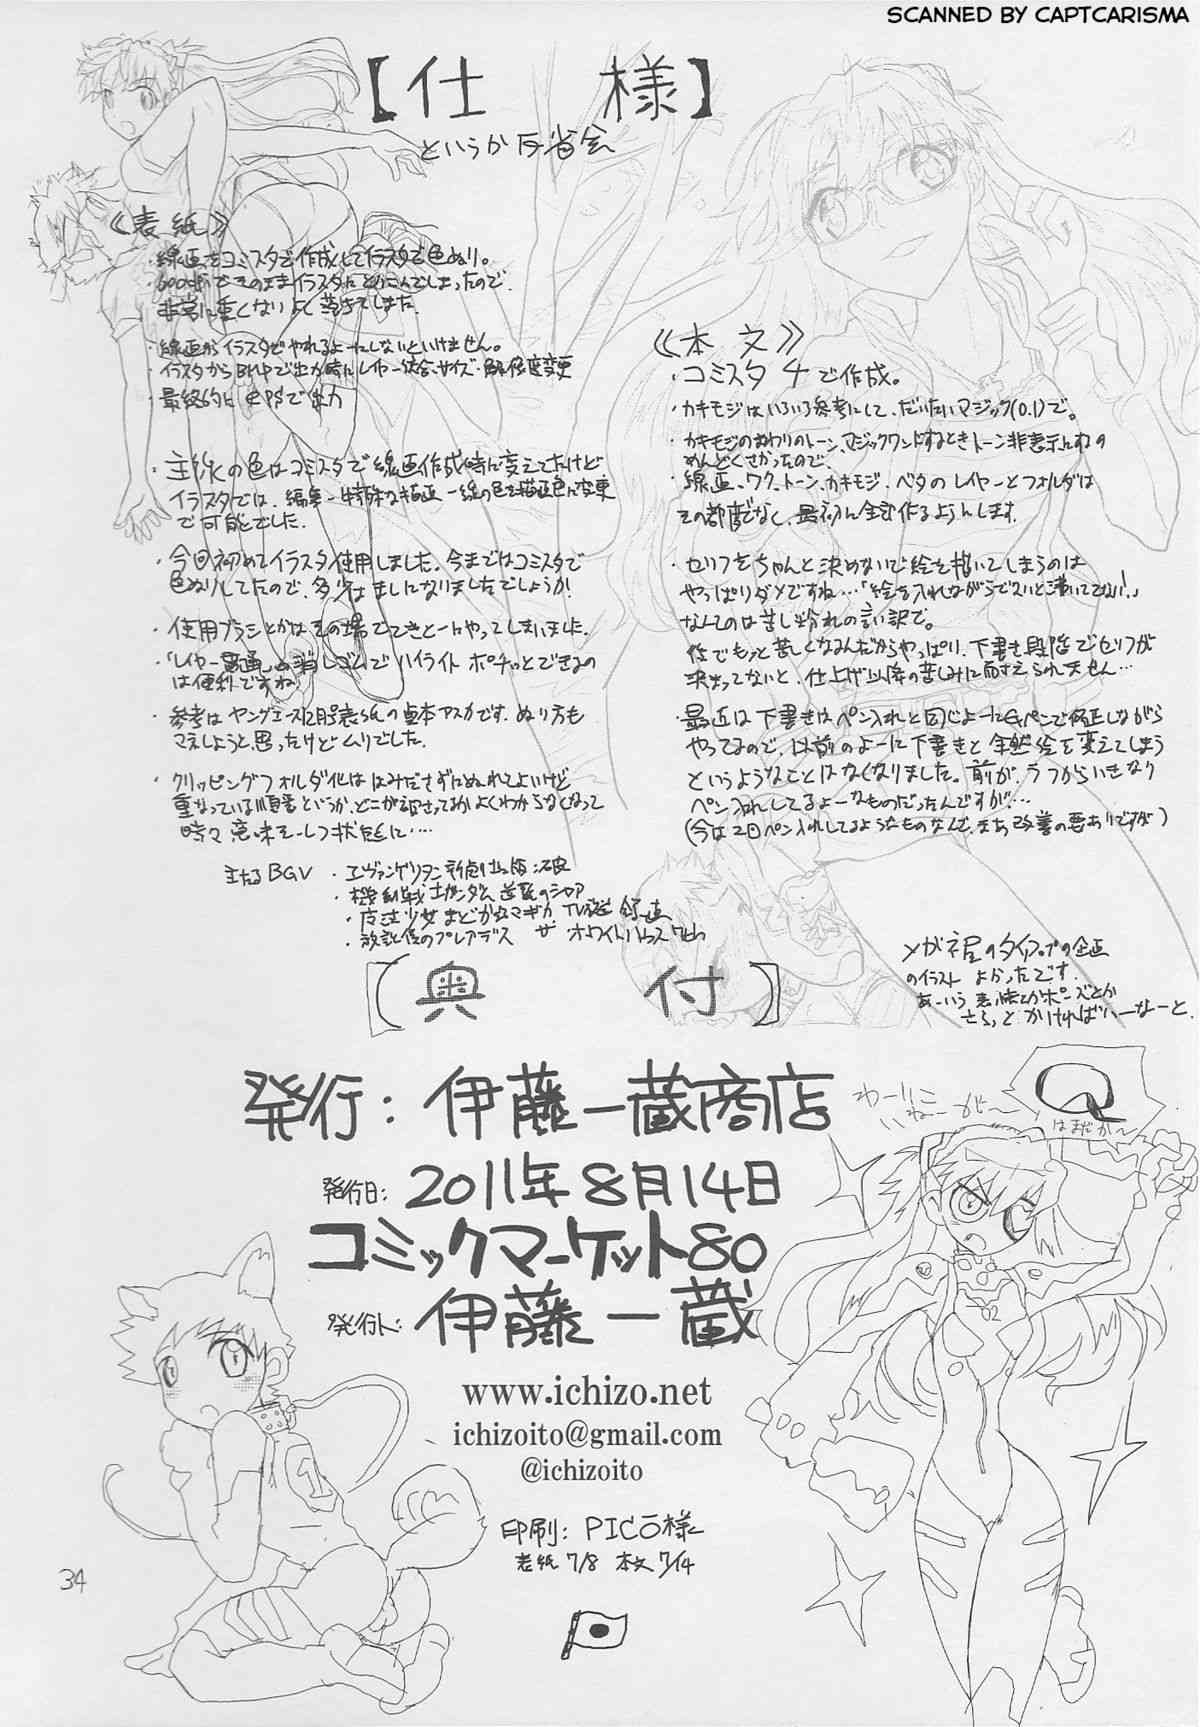 SCANNED BY CAPTCARISMA
【仕 様】
というか反省会
《表紙》
・線画をコミスタで作成してイラスタで色ぬり。
・600dpiでそのままイラスタに
非常に重くなりよく落ちてしまた
・線画からイラスタでやれるよーにしないといけません。
・イラスタからBMPで出力時にレイヤー結合、サイズ・解像度変更
・最終的に EPSで出力
・主線の色はコミスタで線画作成時に変えてたけど
イラスタでは、編集ー特殊な描画ー線の色を描画色に変更
で可能でした。
・今回初めてイラスタ使用しました。今まではコミスタで
色ぬりしてたので、多少はましになりましたでしょうか!
・使用ブラシとかはその場でてきとーにやってしまいました。
・「レイヤー貫通」の消しゴムでハイライト ポチッとできるの
は便利ですね
・参考は ヤングエース 表紙の貞本アスカです。ぬり方も
マネしようと思ったけどムリでした。
・クリッピングフォルダ化ははみださずにぬれてよいけど
重なっている順番というか、どこが でるか よくわからなくなって
時々 意味なーし状態に‥‥
主たるBGV ・エヴァンゲリヲン新劇場版:破
・機動戦士ガンダム 逆襲のシャア
・魔法少女まどか☆マギカ TV放送 録画
・放課後のプレアデス ザ ホワイトハウス
《本文》
・コミスタ4で作成。
・カキモジはいろいろ参考にして、だいたいマジック(0.1)で。
・カキモジのまわりのトーン、マジックワンドするときトーン非表示にするの
めんどくさかったので、
・線画、ワク、トーン、カキモジ、ベタの レイヤーとフォルダは
その都度でなく、最初に全部作るよーにします。
・セリフをちゃんと決めないで絵を描いてしまうのは
やっぱりダメですね…「絵を入れながらでないと沸いてこない!」
なんてのは苦し紛れの言い訳で。
後でもっと苦しくなるんだからやっぱり、下書き段階でセリフが
決まってないと、仕上げ以降の苦しみに耐えられません…
・最近は下書きはペン入れと同じよーにGペンで修正しながら
やってるので、以前のよーに下書きと全然絵を変えてしまう
というようなことはなくなりました。前が、ラフからいきなり
ペン入れしてるよーなものだったんですが…
(今は2回ペン入れしてるようなものなんで、まだ改善の要ありですが)
メガネ屋のタイアップの企画
のイラスト よかったです。
あーいう 表情とかポーズとか
さらっと かければいーなーと。
【奥 付】
発行:伊藤一蔵商店
発行日:2011年8月14日
コミックマーケット80
発行人:伊藤一蔵
www.ichizo.net
ichizoito@gmail.com
@ichizoito
印刷:PICO様
表紙7/8 本文7/14
わーりこ
いねーがー
Q
はまだかー
1
02
34